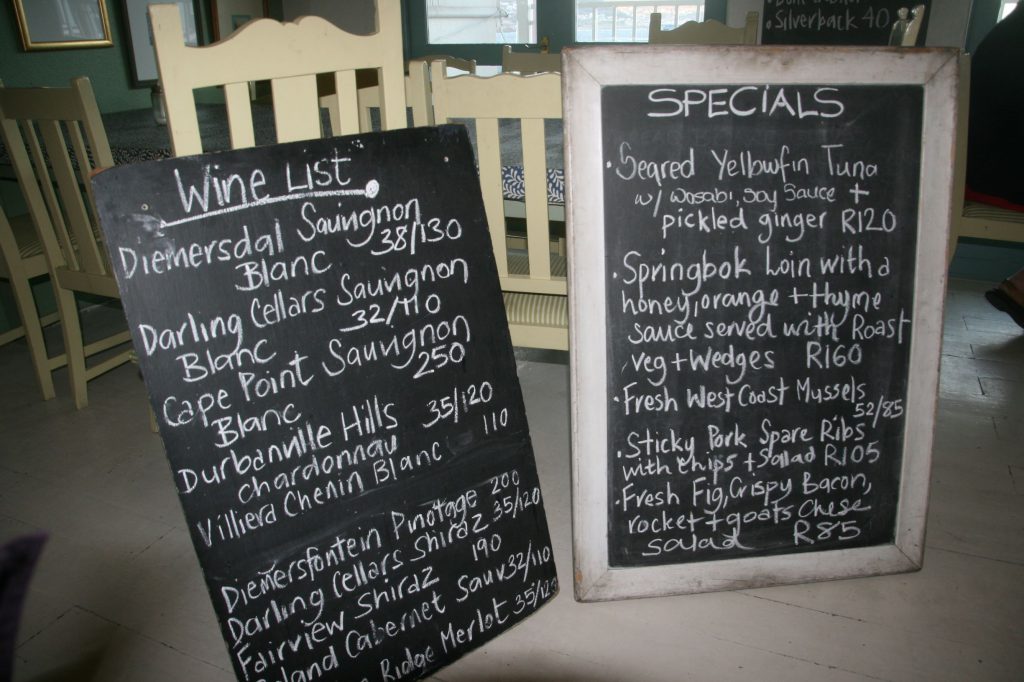 Silverback 40
Wine List
Diemersdal Sauvignon
Blanc 38/130
Darling Cellars Sauvignon
Blanc 32/110
Cape Point Sauvignon
Blanc 250
Durbanville Hills 35/120
chardonnay
Villiera Chenin Blanc 110
Diemersfontein Pinotage 200
Darling Cellars Shiraz 35/120
Fairview Shiraz 190
Cabernet Sauv 32/110
Ridge Merlot 35/120
SPECIALS
• Seared Yellowfin Tuna
w/ wasabi, soy sauce +
pickled ginger R120
• Springbok Loin with a
honey, orange + thyme
sauce served with Roast
veg + Wedges R160
• Fresh West Coast Mussels
52/85
• Sticky Pork Spare Ribs
with chips + Salad R105
• Fresh Fig, Crispy Bacon,
rocket + goats Chese
salad R85